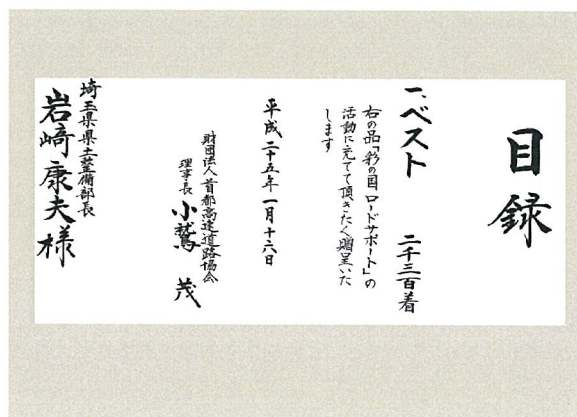 目録
一、ベスト 二千三百着
右の品「彩の国ロードサポート」の
活動に充てて頂きたく贈呈いた
します
平成二十五年一月十六日
財団法人首都高速道路協会
理事長 小鷲 茂
埼玉県県土整備部長
岩﨑康夫様